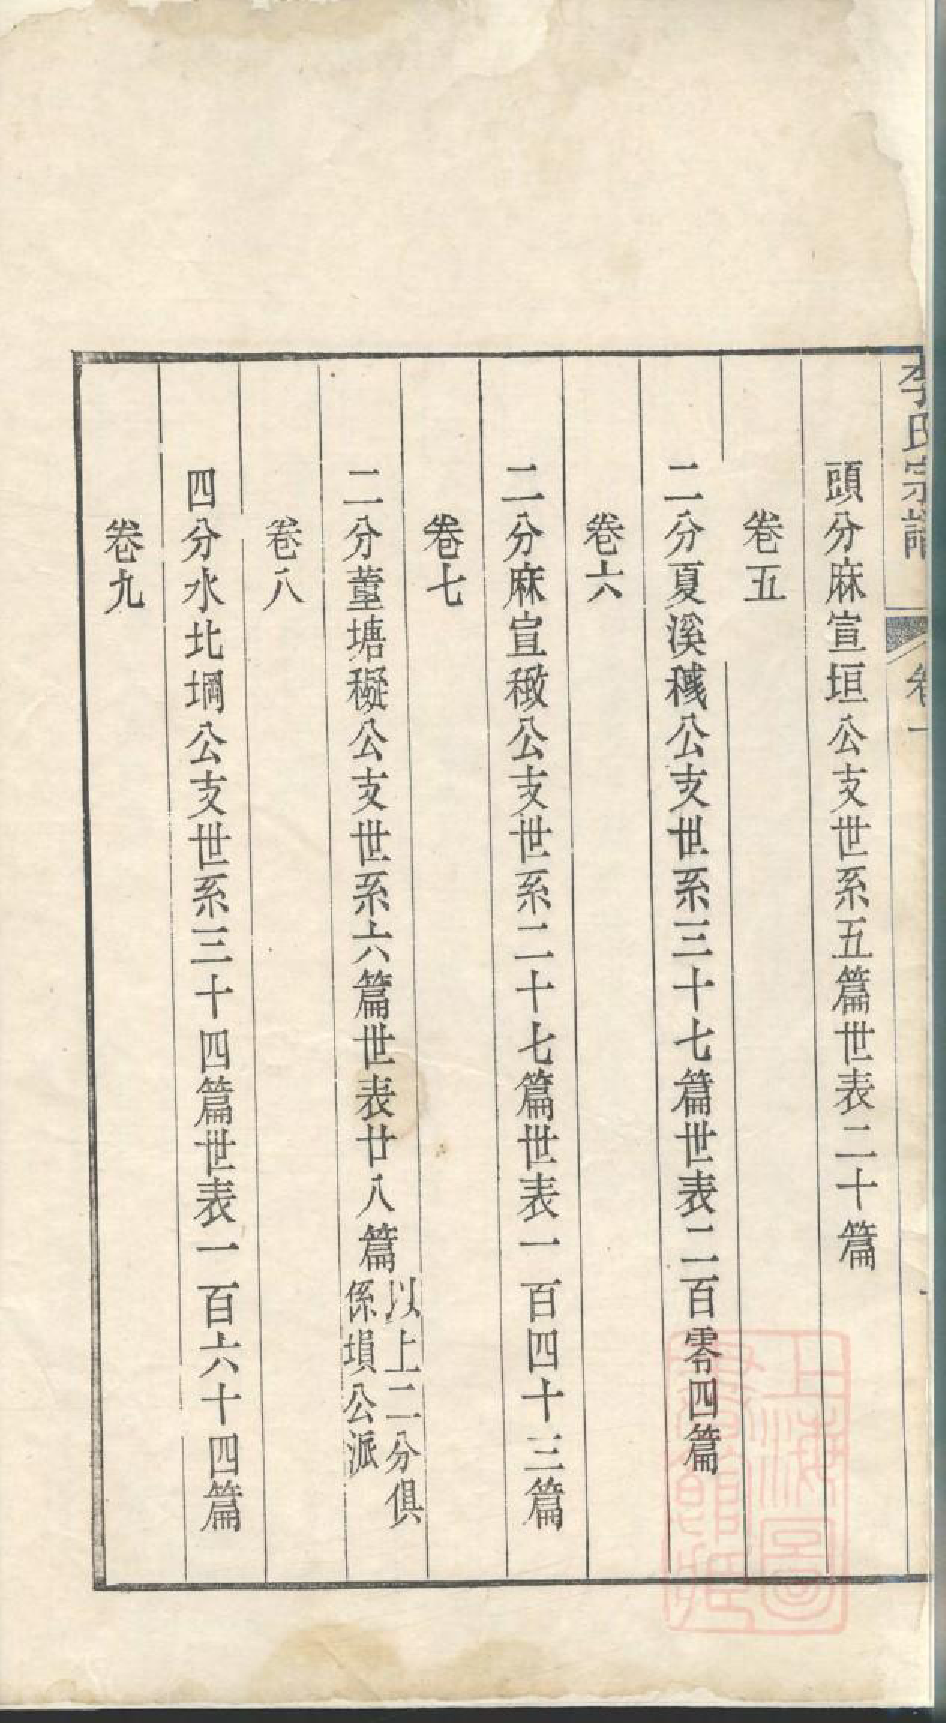 李氏宗譜
卷一
頭分麻宣垣公支世系五篇世表二十篇
卷五
二分夏溪稶公支世系三十七篇世表二百零四篇
卷六
二分麻宣稵公支世系二十七篇世表一百四十三篇
卷七
二分蕫塘穓公支世系六篇世表廿八篇以上二分俱
係塤公派
卷八
四分水北堈公支世系三十四篇世表一百六十四篇
卷九
上海圖
書館藏